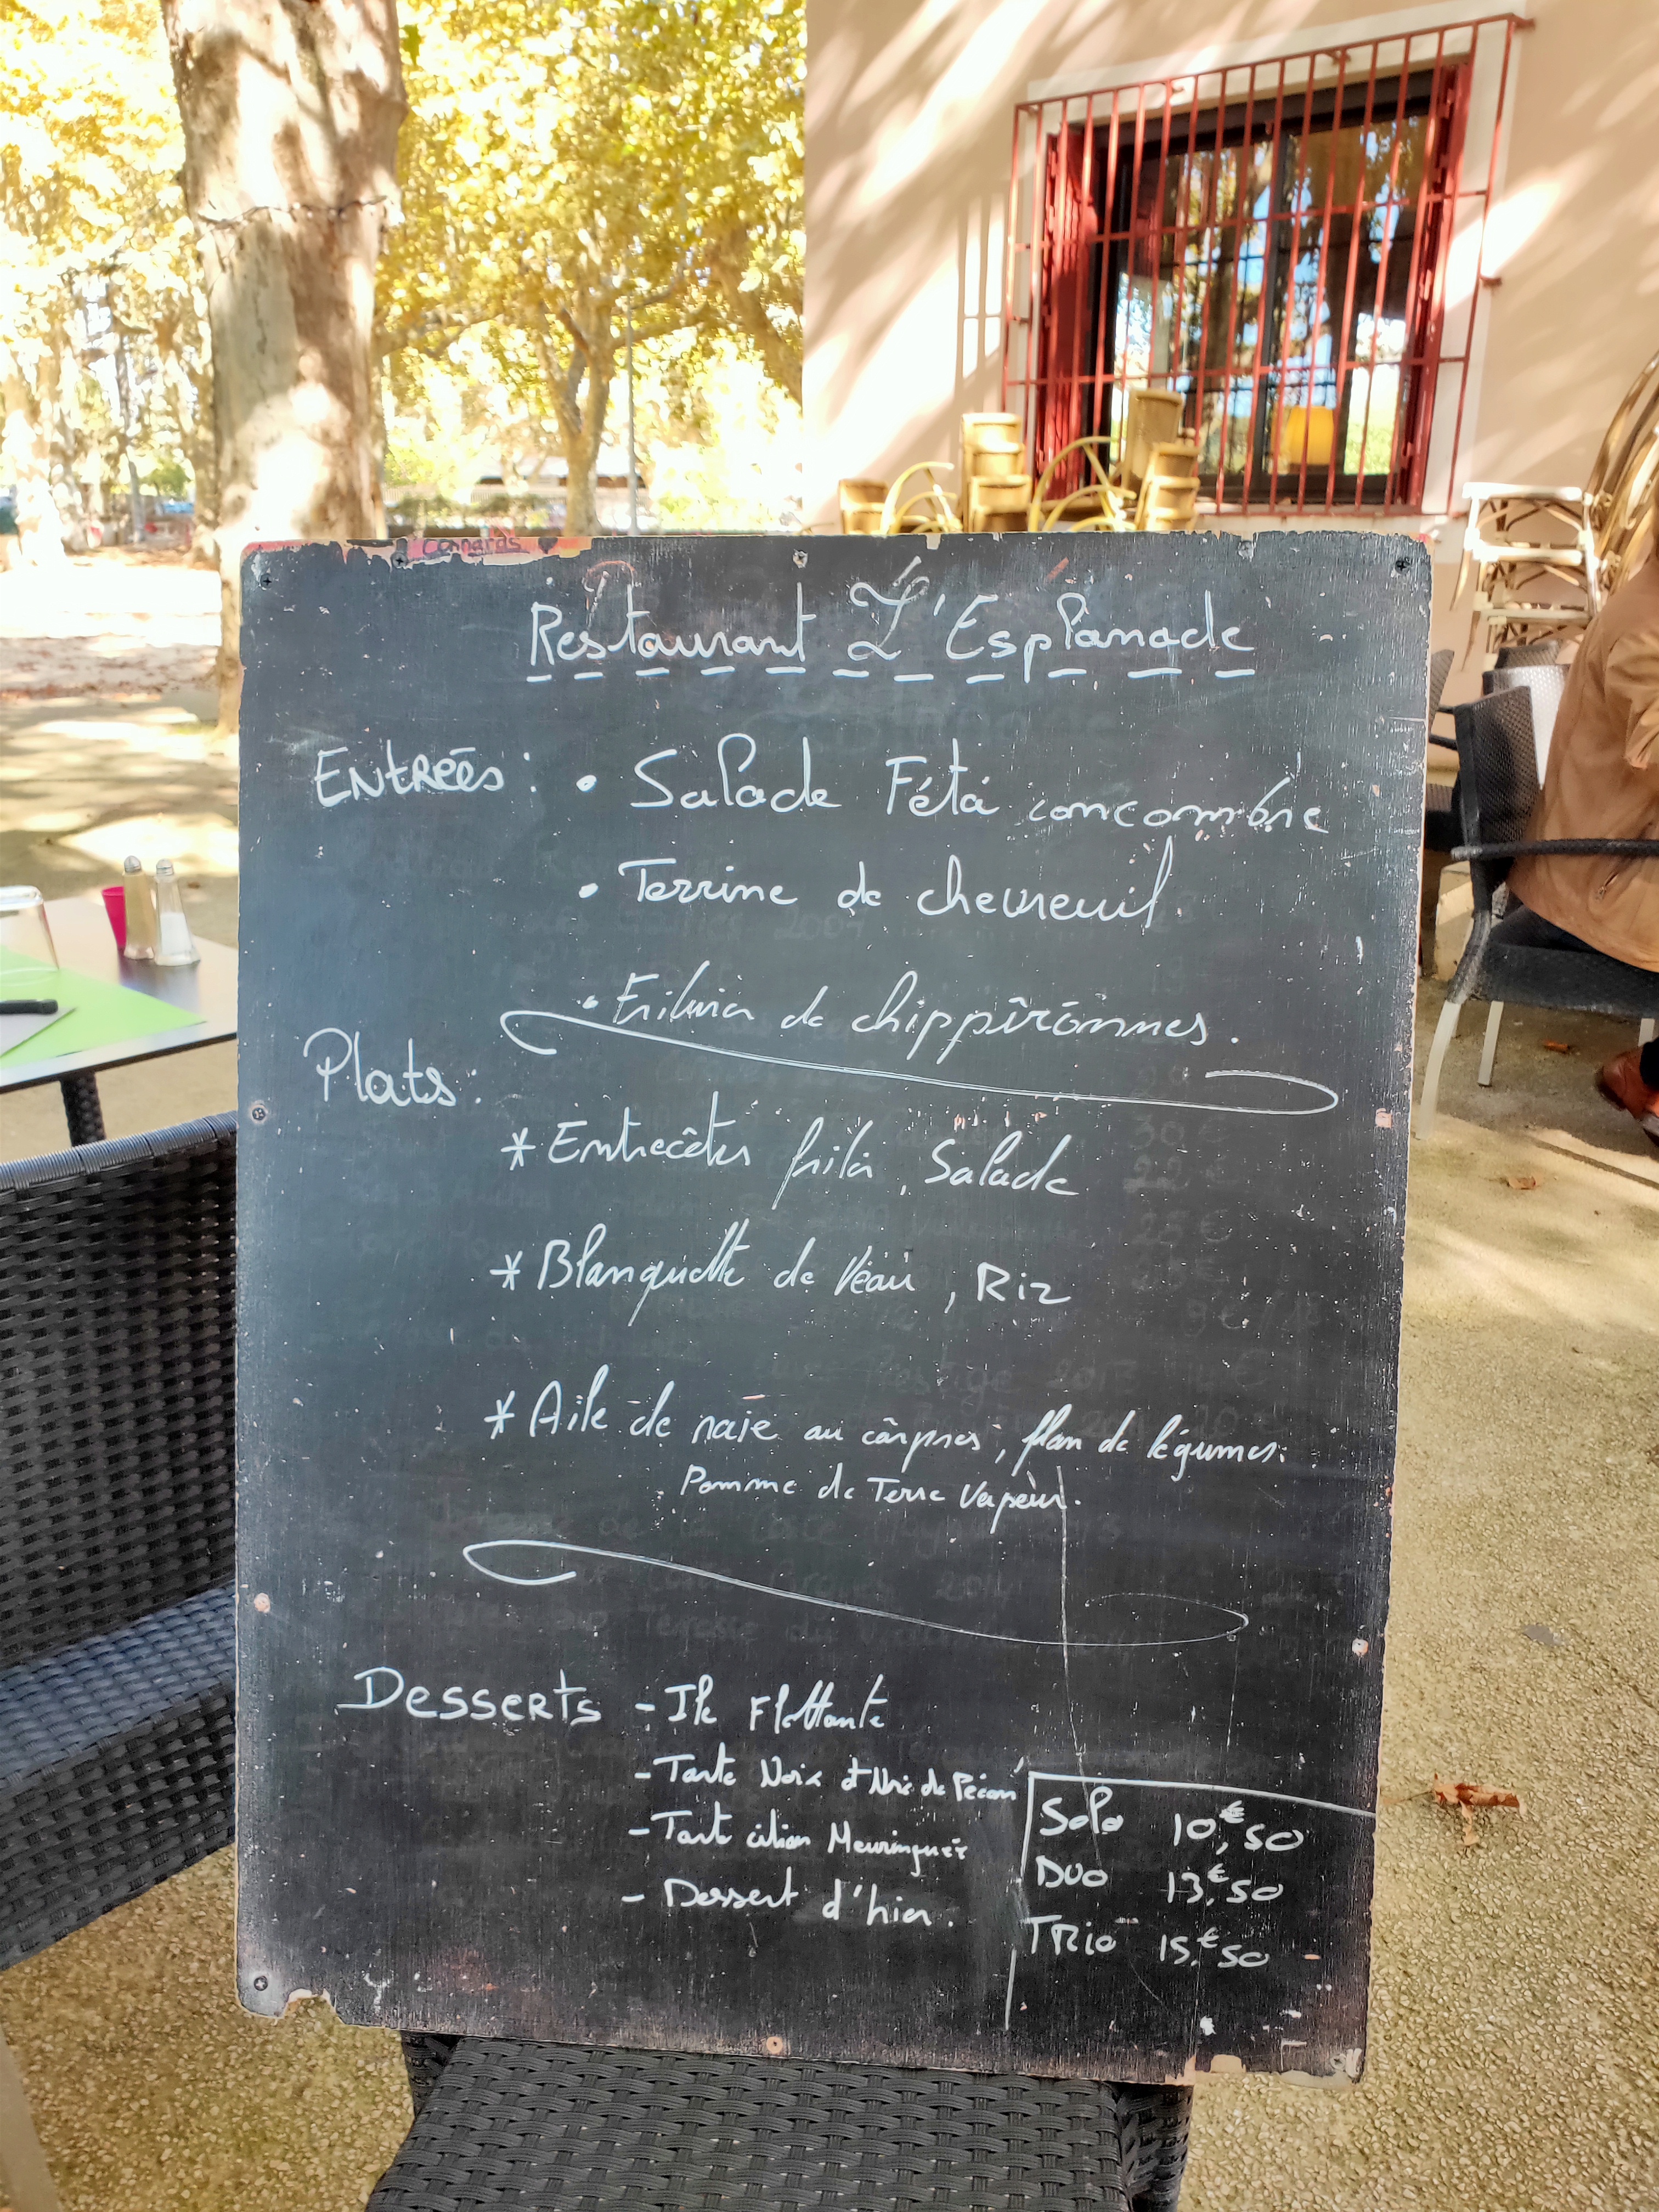 connards
Restaurant L'Esplanade
Entrées : • Salade Féta concombre
• Terrine de chevreuil.
• Friture de chippirônnes.
Plats :
* Entrecôtes frites, Salade
* Blanquette de Veau, Riz
* Aile de raie au câpres, flan de légumes.
Pomme de Terre Vapeur.
Desserts - Ile Flottante
- Tarte Noix et Noix de Pécan
- Tarte citron Meuringuée
- Dessert d'hier.
Solo 10,€50
Duo 13,€50
TRio 15,€50